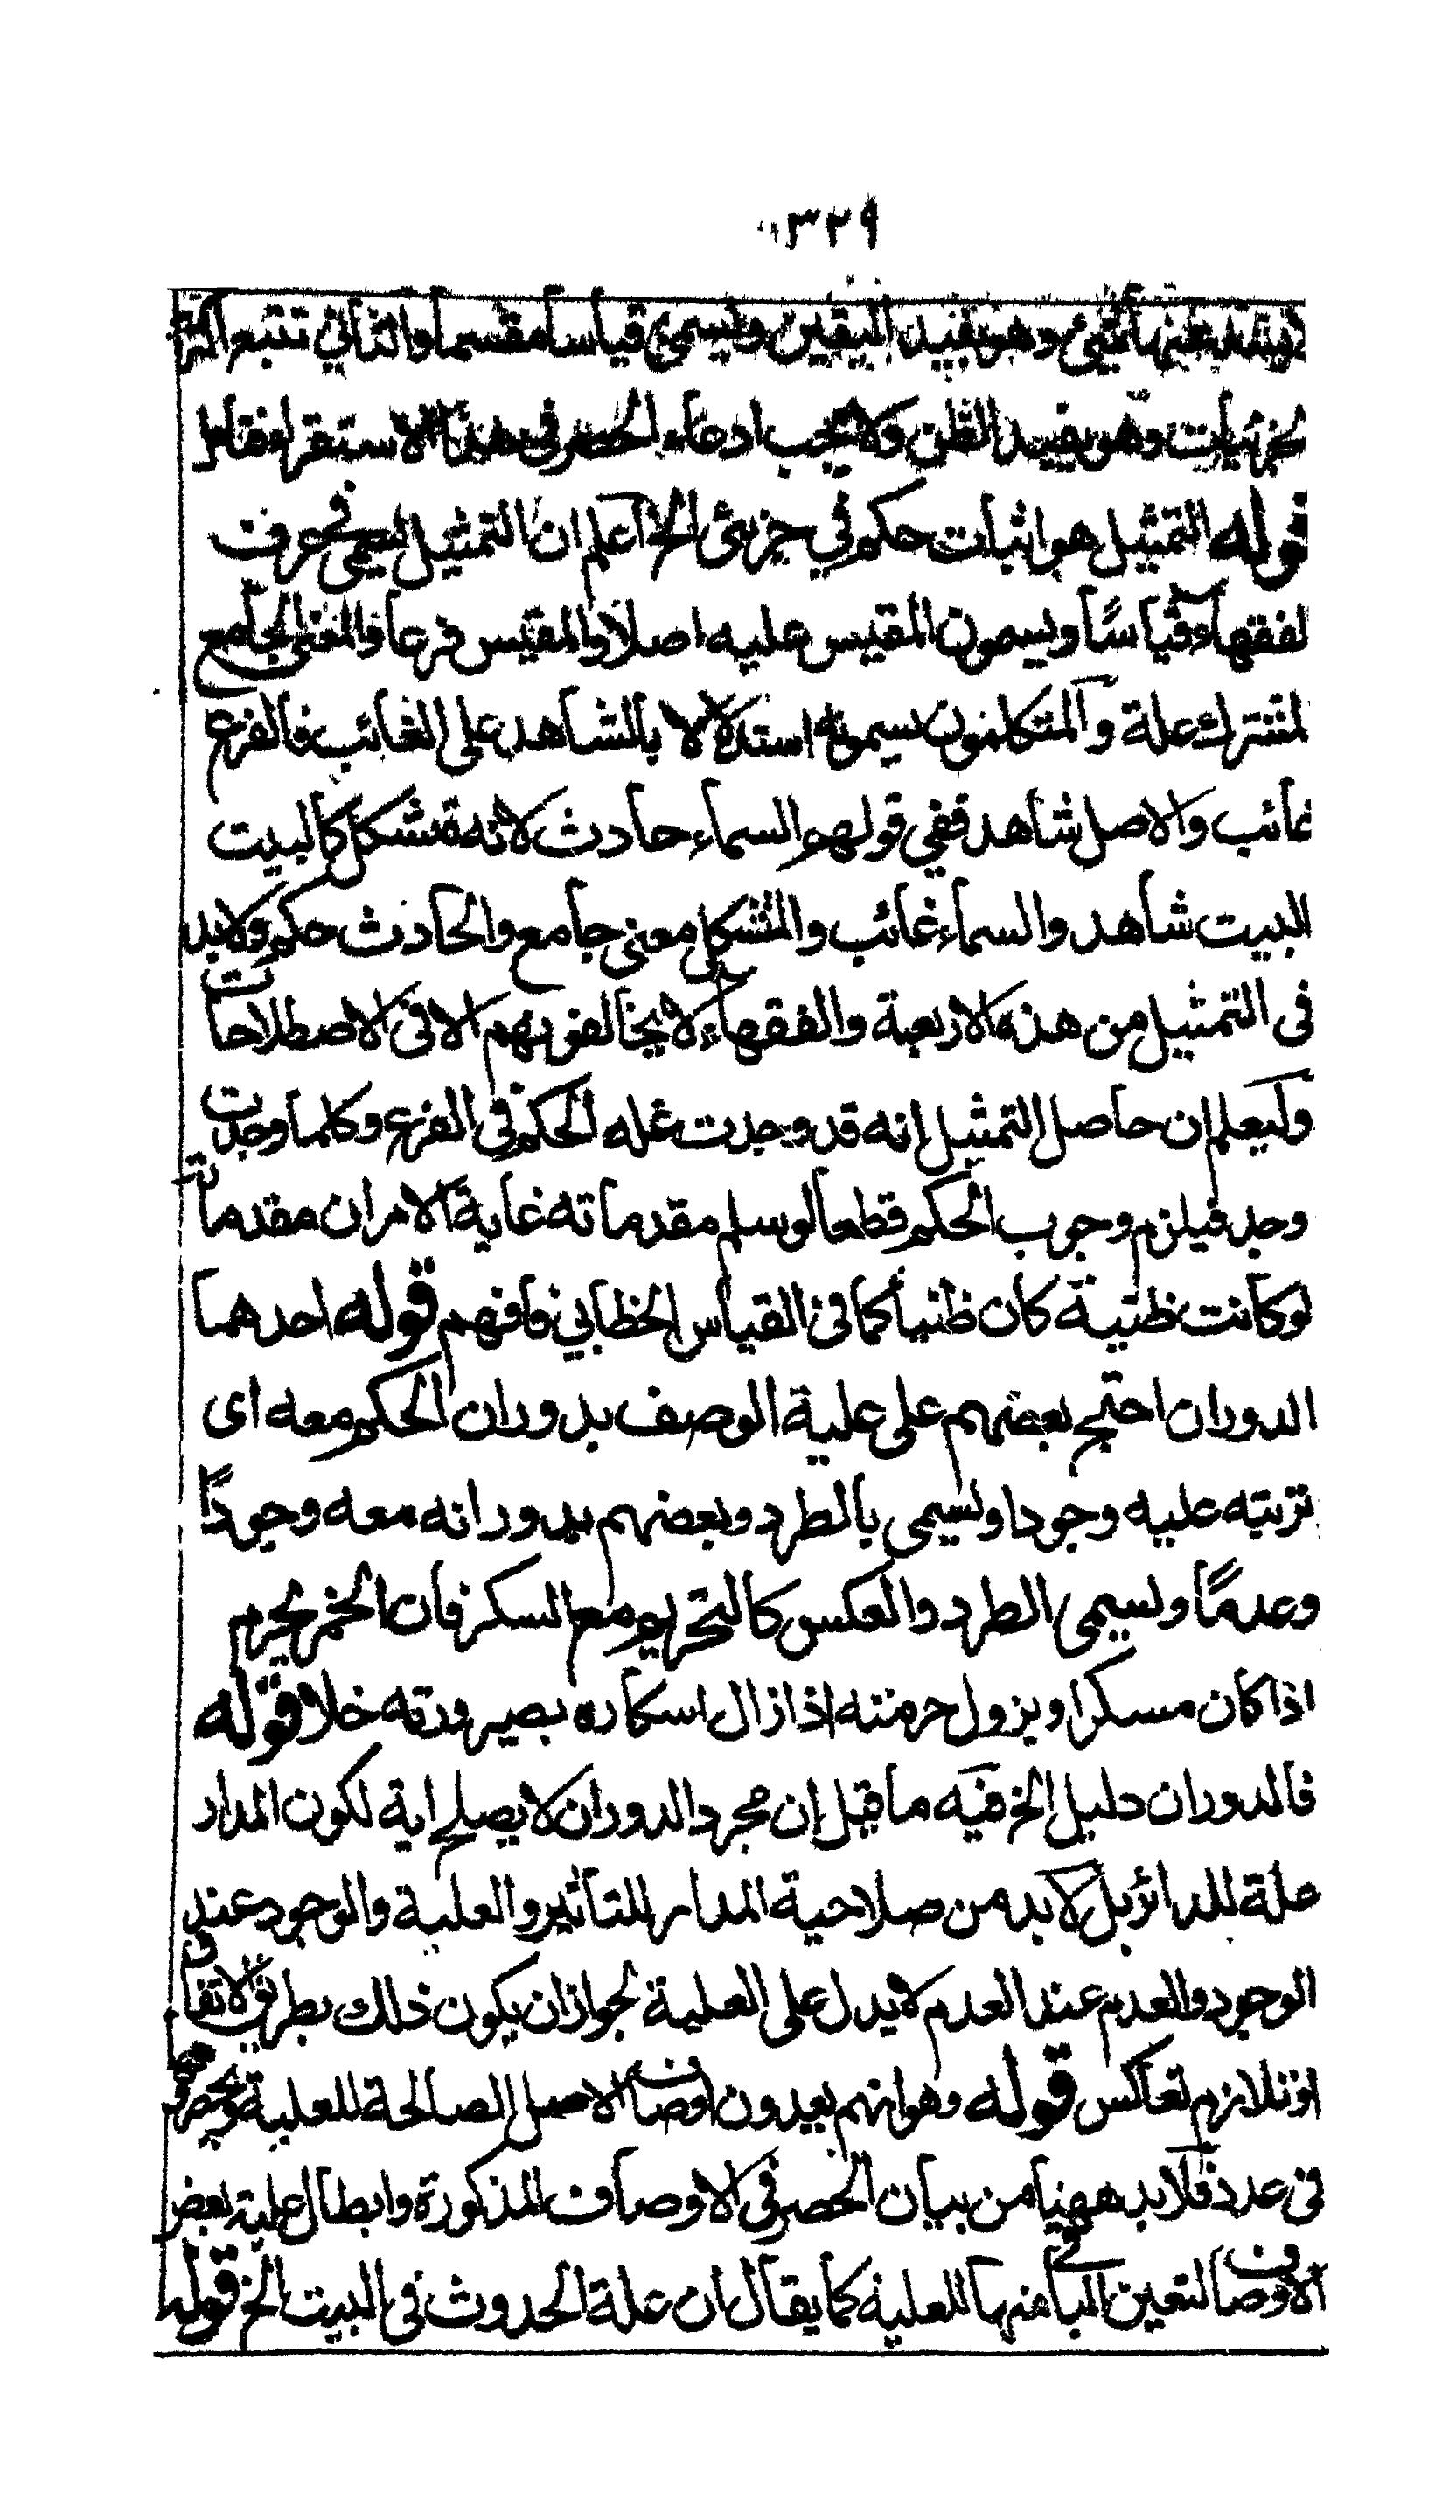 ٣٢٩
يشذ عنها شئ وهو يفيد اليقين ويسمى قياسا مقسما والثاني تتبع اكثر
لجزئيات وهو يفيد الظن ولا يجب ادعاء الحصر فى هذا الاستقراء
قوله التمثيل هو اثبات حكم في جزئى الخ اعلم ان التمثيل يسمى فى عرف
لفقهاء قياسًا ويسمون المقيس عليه اصلا والمقيس فرعا والمعنى الجامع
لمشترك علة والمتكلمون يسمونه استدلالا بالشاهد على الغائب فالفرع
غائب والاصل شاهد ففي قولهم السماء حادث لانه متشكل كالبيت
البيت شاهد والسماء غائب والمتشكل معنى جامع والحادث حكم ولا بد
فى التمثيل من هذه الاربعة والفقهاء لا يخالفونهم الا فى الاصطلاحات
وليعلم ان حاصل التمثيل انه قد وجدت علة الحكم في الفرع وكلما وجدت
وجد فيلزم وجوب الحكم قطعا لو سلم مقدماته غاية الامر ان مقدماته
لو كانت ظنية كان ظنيا كما فى القياس الخطابي فافهم قوله احدهما
الدوران احتج بعضهم على علية الوصف بدوران الحكم معه اى
ترتبه عليه وجودا ويسمى بالطرد وبعضهم بدورانه معه وجودًا
وعدمًا ويسمى الطرد والعكس كالتحريم مع السكر فان الخمر يحرم
اذا كان مسكرا ويزول حرمته اذا زال اسكاره بصيرورته خلا قوله
فالدوران دليل الخ فيه ما قيل ان مجرد الدوران لا يصلح اية لكون المدار
علة للدائر بل لا بد من صلاحية المدار للتأثير والعلية والوجود عند
الوجود والعدم عند العدم لا يدل على العلية لجواز ان يكون ذلك بطريق الاتفاق
او تلازم تعاكس قوله وهو انهم يعدون اوصاف الاصل الصالحة للعلية ويحصر
فى عدد فلا بد ههنا من بيان الحصر في الاوصاف المذكورة وابطال علية بعض
الاوصاف لتعين الباقي منها للعلية كما يقال ان علة الحدوث فى البيت الخ قوله